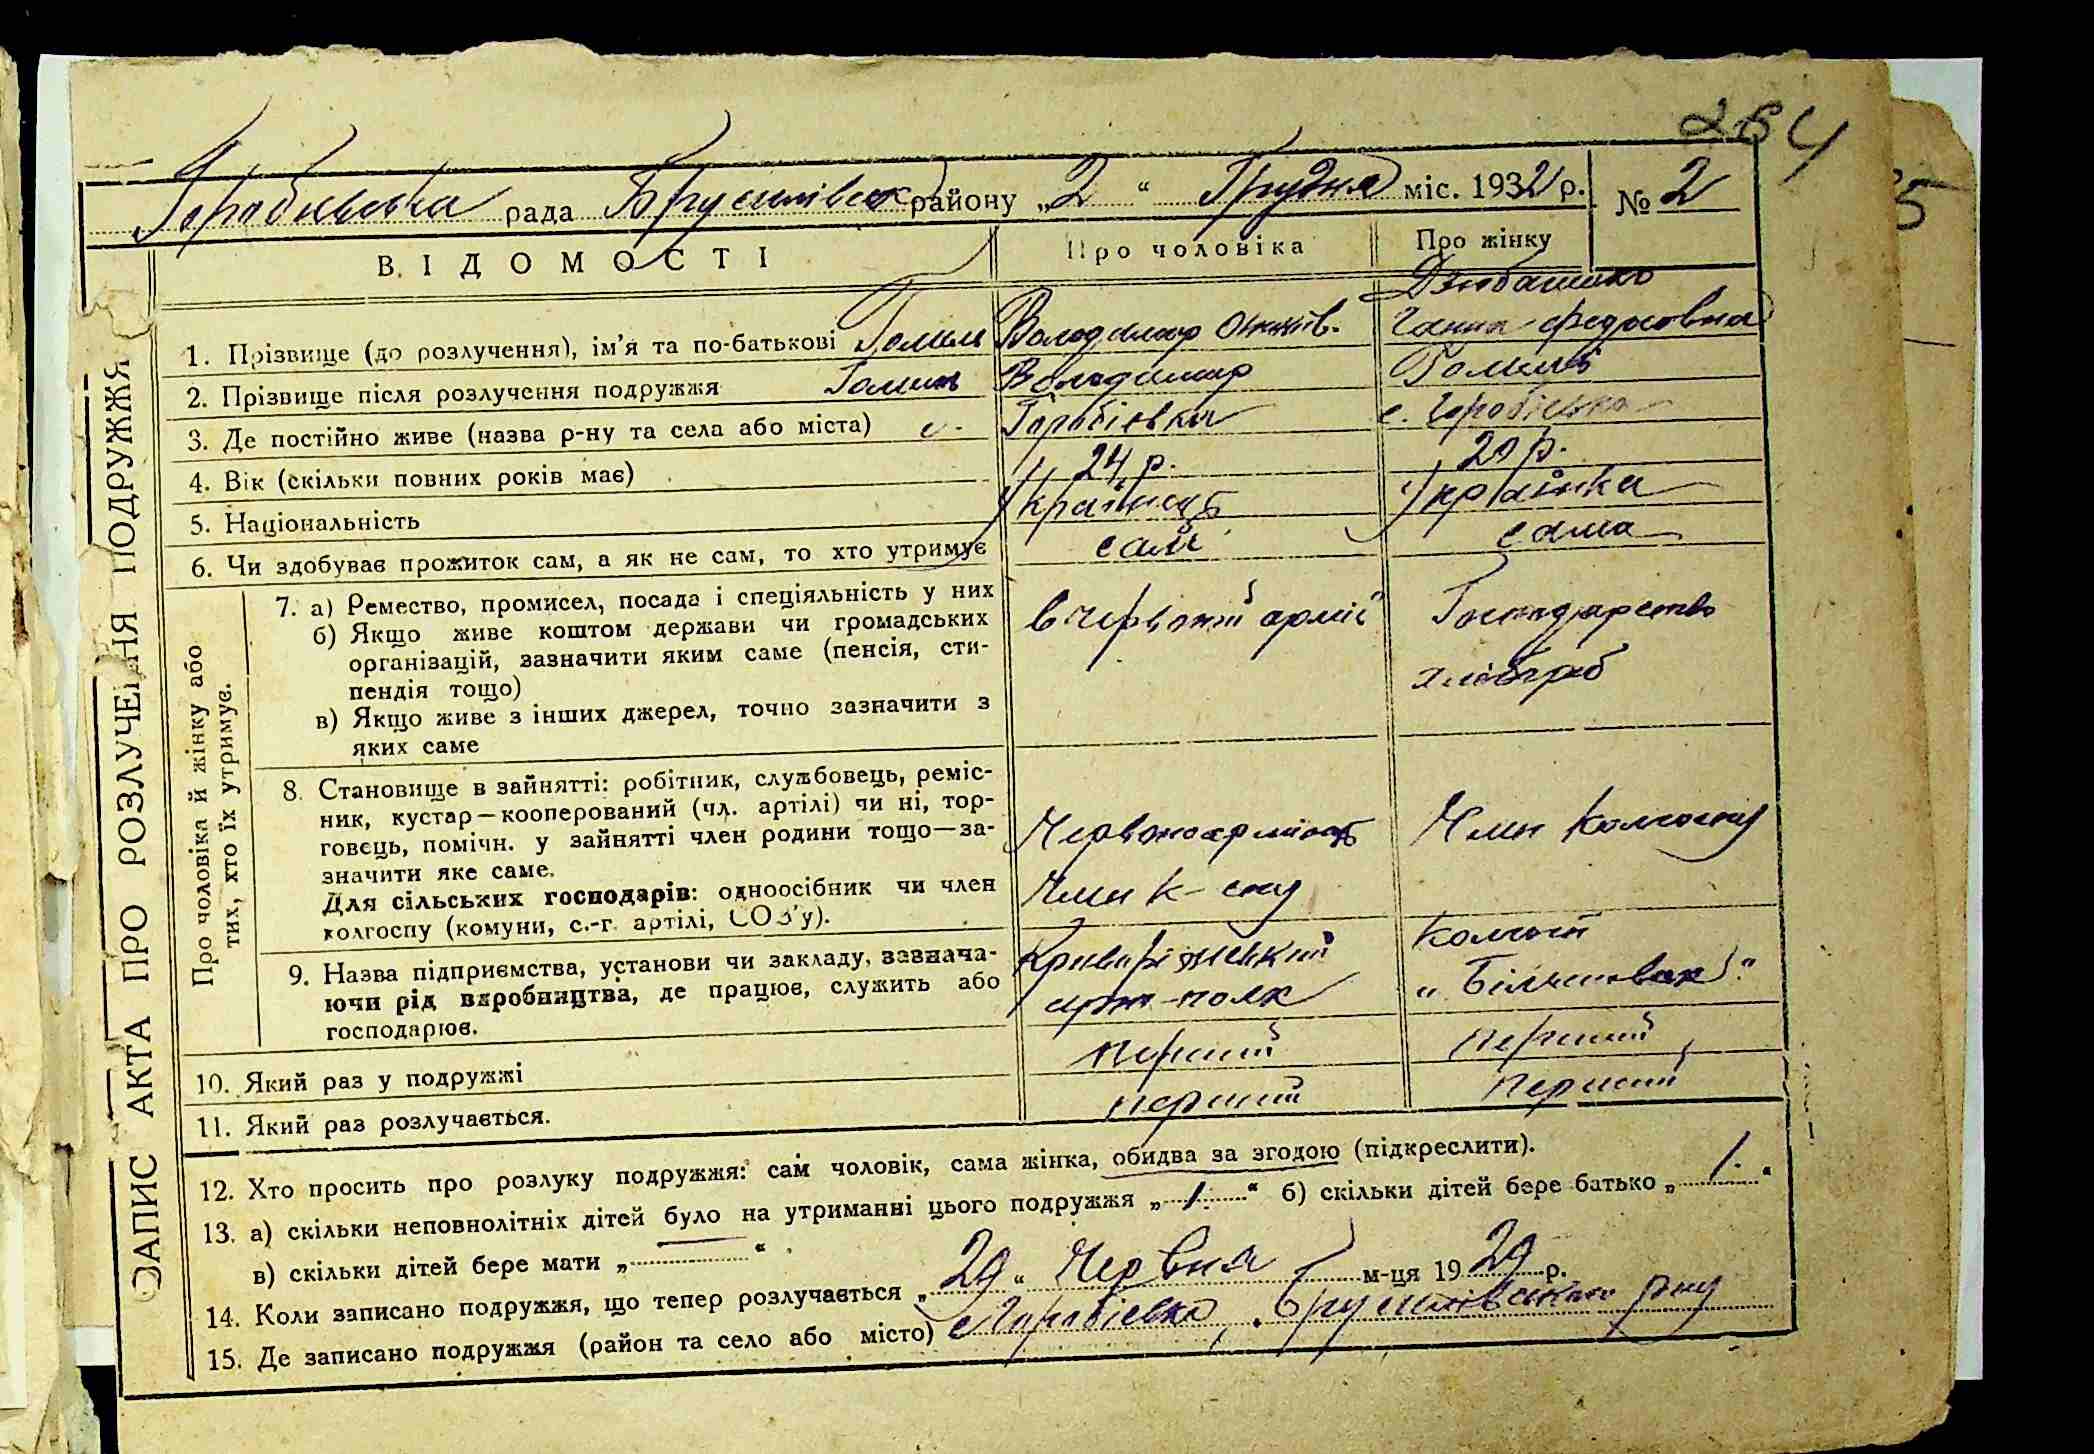 264
рада Брусилівськ району „2“ Грудня міс. 1932 р. № 2
5
ВІДОМОСТІ Про чоловіка Про жінку
1. Прізвище (до розлучення), ім'я та по-батькові Володимир Ганна Федосовна
2. Прізвище після розлучення подружжя Володимир
3. Де постійно живе (назва р-ну та села або міста) с. Горобіевка с. Горобіевка
4. Вік (скільки повних років має) 24 р. 20 р.
5. Національність Українець Українка
6. Чи здобуває прожиток сам, а як не сам, то хто утримує сам сама
ЗАПИС АКТА ПРО РОЗЛУЧЕННЯ ПОДРУЖЖЯ
Про чоловіка й жінку або
тих, хто їх утримує.
7. а) Ремество, промисел, посада і спеціяльність у них
б) Якщо живе коштом держави чи громадських
організацій, зазначити яким саме (пенсія, сти-
пендія тощо)
в) Якщо живе з інших джерел, точно зазначити з
яких саме
в Червоній армії
Господарство
хлібороб
8. Становище в зайнятті: робітник, службовець, реміс-
ник, кустар—кооперований (чл. артілі) чи ні, тор-
говець, помічн. у зайнятті член родини тощо—за-
значити яке саме.
Для сільських господарів: одноосібник чи член
колгоспу (комуни, с.-г. артілі, СОЗ'у).
Червоноармієць
Член к-спу
Член Колгоспу
9. Назва підприємства, установи чи закладу, зазнача-
ючи рід виробництва, де працює, служить або
господарює.
Криворізький
арт-полк
Колгосп
„Більшовик“
10. Який раз у подружжі перший перший
11. Який раз розлучається. перший перший
12. Хто просить про розлуку подружжя: сам чоловік, сама жінка, обидва за згодою (підкреслити).
13. а) скільки неповнолітніх дітей було на утриманні цього подружжя „1“ б) скільки дітей бере батько „1.“
в) скільки дітей бере мати „ “
14. Коли записано подружжя, що тепер розлучається „29“ Червня м-ця 1929 р.
15. Де записано подружжя (район та село або місто) с Горобіевка, Брусилівського рну